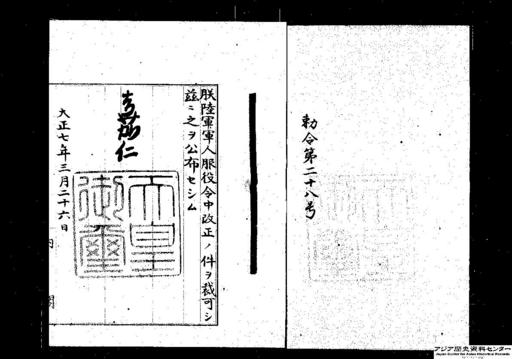 朕陸軍軍人服役令中改正ノ件ヲ裁可シ
茲ニ之ヲ公布セシム
嘉仁
天皇御璽
大正七年三月二十六日
内閣
勅令第二十八号
アジア歴史資料センター
Japan Center for Asian Historical Records